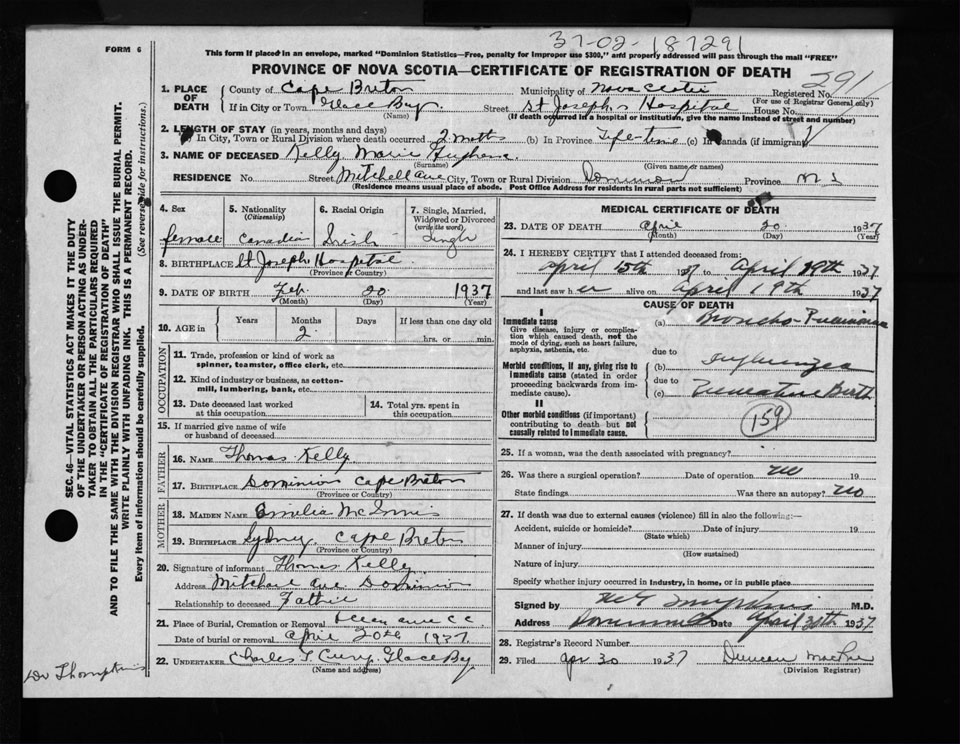 37-02-187291
FORM 6
This form if placed in an envelope, marked "Dominion Statistics—Free, penalty for improper use $300," and properly addressed will pass through the mail "FREE"
PROVINCE OF NOVA SCOTIA—CERTIFICATE OF REGISTRATION OF DEATH
291
1. PLACE OF DEATH County of Cape Breton Municipality of Nova Scotia Registered No.
(For use of Registrar General only)
If in City or Town Glace Bay Street St Joseph's Hospital House No.
(Name) (If death occurred in a hospital or institution, give the name instead of street and number)
2. LENGTH OF STAY (in years, months and days)
(a) In City, Town or Rural Division where death occurred 2 (b) In Province Life-time (c) In Canada (if immigrant)
3. NAME OF DECEASED Kelly Marie
(Surname) (Given name or names)
RESIDENCE No. Street Mitchell Ave City, Town or Rural Division Dominion Province N S
(Residence means usual place of abode. Post Office Address for residents in rural parts not sufficient)
4. Sex 5. Nationality (Citizenship) 6. Racial Origin 7. Single, Married, Widowed or Divorced (write the word)
female Canadian Irish Single
8. BIRTHPLACE St Joseph Hospital
(Province or Country)
9. DATE OF BIRTH Feb. 20 1937
(Month) (Day) (Year)
10. AGE in Years Months Days If less than one day old
2 hrs. or min.
OCCUPATION
11. Trade, profession or kind of work as spinner, teamster, office clerk, etc.
12. Kind of industry or business, as cotton-mill, lumbering, bank, etc.
13. Date deceased last worked at this occupation 14. Total yrs. spent in this occupation
15. If married give name of wife or husband of deceased
FATHER
16. NAME Thomas Kelly
17. BIRTHPLACE Dominion Cape Breton
(Province or Country)
MOTHER
18. MAIDEN NAME Emelia McInnis
19. BIRTHPLACE Sydney Cape Breton
(Province or Country)
20. Signature of informant Thomas Kelly
Address Mitchell Ave Dominion
Relationship to deceased Father
21. Place of Burial, Cremation or Removal
Date of burial or removal April 20th 1937
22. UNDERTAKER Charles Curry Glace Bay
(Name and address)
Dr Thompkins
MEDICAL CERTIFICATE OF DEATH
23. DATE OF DEATH April 20 1937
(Month) (Day) (Year)
24. I HEREBY CERTIFY that I attended deceased from:
April 15th 1937 to April 19th 1937
and last saw her alive on April 19th 1937
CAUSE OF DEATH
I
Immediate cause (a) Broncho-Pneumonia
Give disease, injury or complication which caused death, not the mode of dying, such as heart failure, asphyxia, asthenia, etc.
due to
Morbid conditions, if any, giving rise to immediate cause (stated in order proceeding backwards from immediate cause).
(b) Influenza
due to
(c) Premature Birth
II
Other morbid conditions (if important) contributing to death but not causally related to immediate cause.
159
25. If a woman, was the death associated with pregnancy?
26. Was there a surgical operation? Date of operation no 19
State findings Was there an autopsy? no
27. If death was due to external causes (violence) fill in also the following:—
Accident, suicide or homicide? Date of injury 19
(State which)
Manner of injury
(How sustained)
Nature of injury
Specify whether injury occurred in industry, in home, or in public place
Signed by Tompkins M.D.
Address Dominion Date April 30th 1937
28. Registrar's Record Number
29. Filed Apr 30 1937 Duncan
(Division Registrar)
SEC. 46—VITAL STATISTICS ACT MAKES IT THE DUTY
OF THE UNDERTAKER OR PERSON ACTING AS UNDER-
TAKER TO OBTAIN ALL THE PARTICULARS REQUIRED
IN THE "CERTIFICATE OF REGISTRATION OF DEATH"
AND TO FILE THE SAME WITH THE DIVISION REGISTRAR WHO SHALL ISSUE THE BURIAL PERMIT.
WRITE PLAINLY WITH UNFADING INK. THIS IS A PERMANENT RECORD.
Every item of information should be carefully supplied. (See reverse side for instructions.)